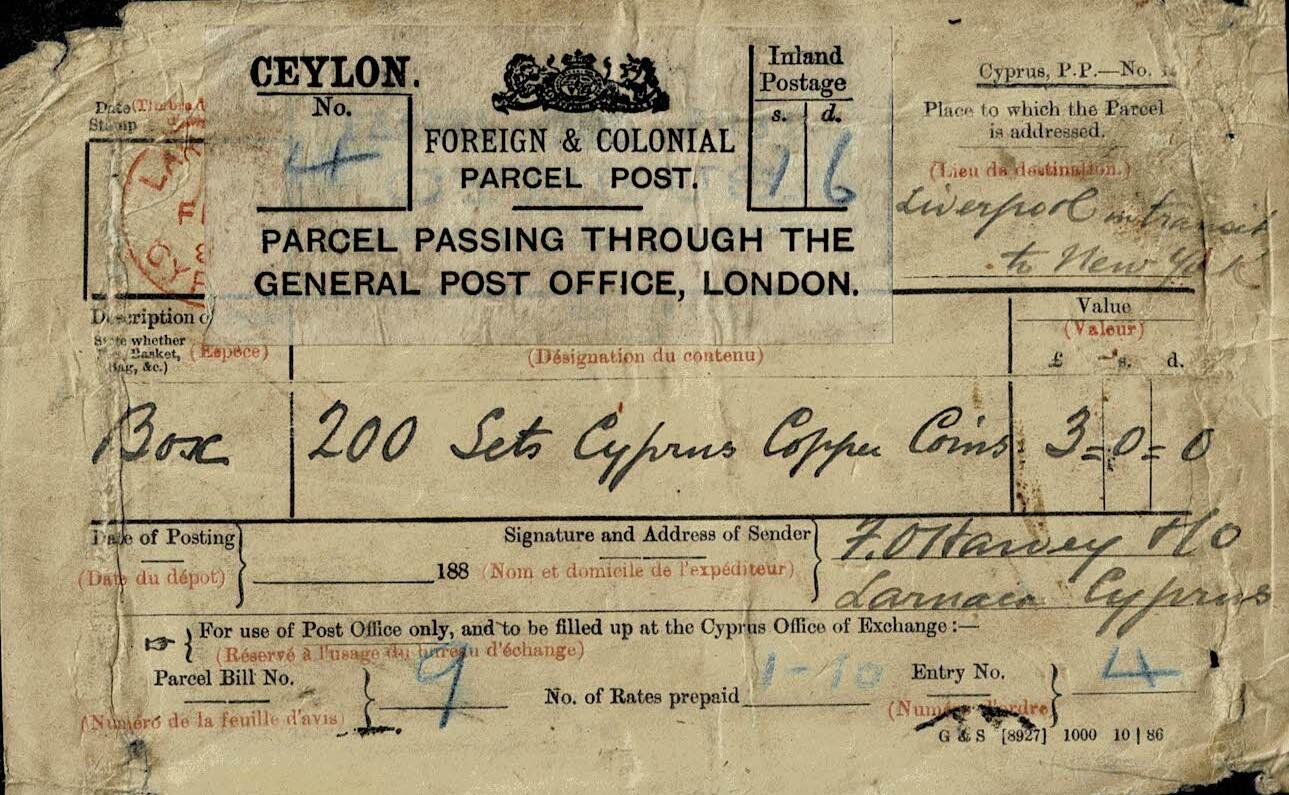 CEYLON.
No.
4
FOREIGN & COLONIAL
PARCEL POST.
Inland
Postage
s. d.
1 6
PARCEL PASSING THROUGH THE
GENERAL POST OFFICE, LONDON.
Cyprus, P.P.—No.
Place to which the Parcel
is addressed.
(Lieu de destination.)
Liverpool in transit
to New York
Date (Timbre d
Stamp
LA
Description of
State whether
Basket,
Bag, &c.)
(Espèce)
(Désignation du contenu)
Value
(Valeur)
£ s. d.
Box 200 Sets Cyprus Copper Coins 3=0=0
Date of Posting
(Date du dépot)
188
Signature and Address of Sender
(Nom et domicile de l'expéditeur)
F.O Harvey
Larnaca Cyprus
For use of Post Office only, and to be filled up at the Cyprus Office of Exchange:—
(Réservé à l'usage du bureau d'échange)
Parcel Bill No.
(Numéro de la feuille d'avis)
9
No. of Rates prepaid 1-10
Entry No.
(Numéro d'ordre)
4
G & S [8927] 1000 10|86